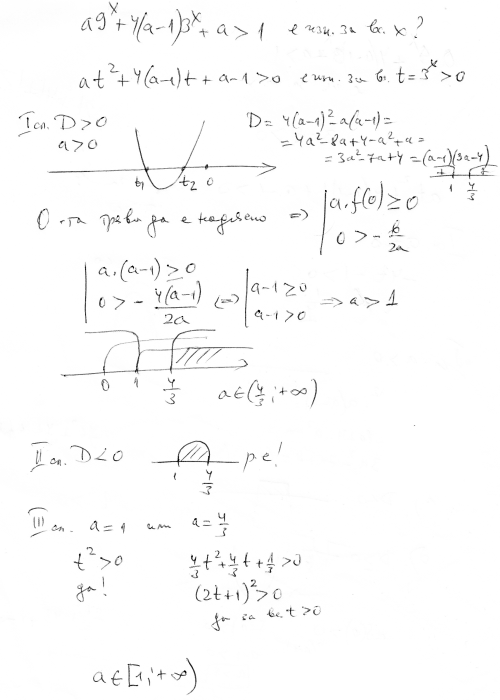 a9^x + 4(a-1)3^x + a > 1 е изп. за вс. x?
at² + 4(a-1)t + a-1 > 0 е изп. за вс. t = 3^x > 0
I сл. D > 0
a > 0
D = 4(a-1)² - a(a-1) =
= 4a² - 8a + 4 - a² + a =
= 3a² - 7a + 4 = (a-1)(3a-4)
+ - +
1 4/3
t₁ t₂ 0
0-та трябва да е надясно ⇒ | a.f(0) ≥ 0
0 > - b/2a
| a.(a-1) ≥ 0
0 > - 4(a-1)/2a ⇔ | a-1 ≥ 0
a-1 > 0 ⇒ a > 1
0 1 4/3
a ∈ (4/3 ; +∞)
II сл. D < 0
1 4/3
р-е!
III сл. a = 1 или a = 4/3
t² > 0 4/3 t² + 4/3 t + 1/3 > 0
да! (2t+1)² > 0
да за вс. t > 0
a ∈ [1 ; +∞)